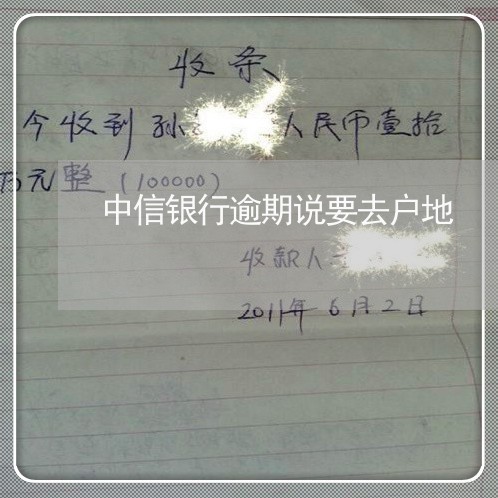 收条
今收到孙 人民币壹拾
万元整(100000)
中信银行逾期说要去户地
收款人
2011年6月2日